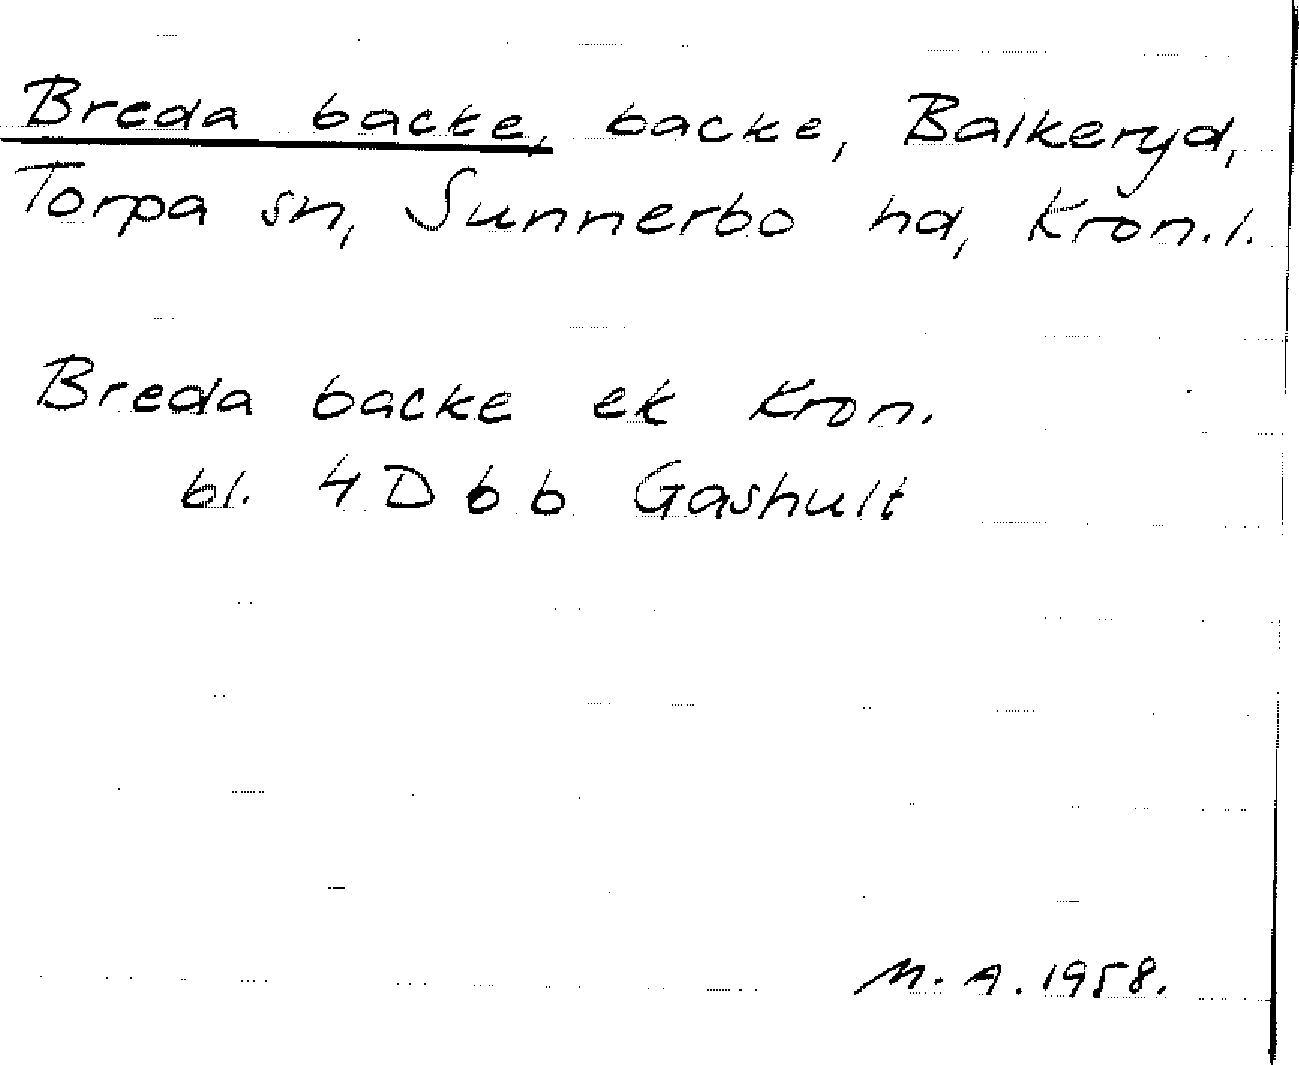 Breda backe, backe, Balkeryd,
Torpa sn, Sunnerbo hd, Kron.l.
Breda backe ek Kron.
bl. 4 D 6 b Gashult
M.A. 1958.